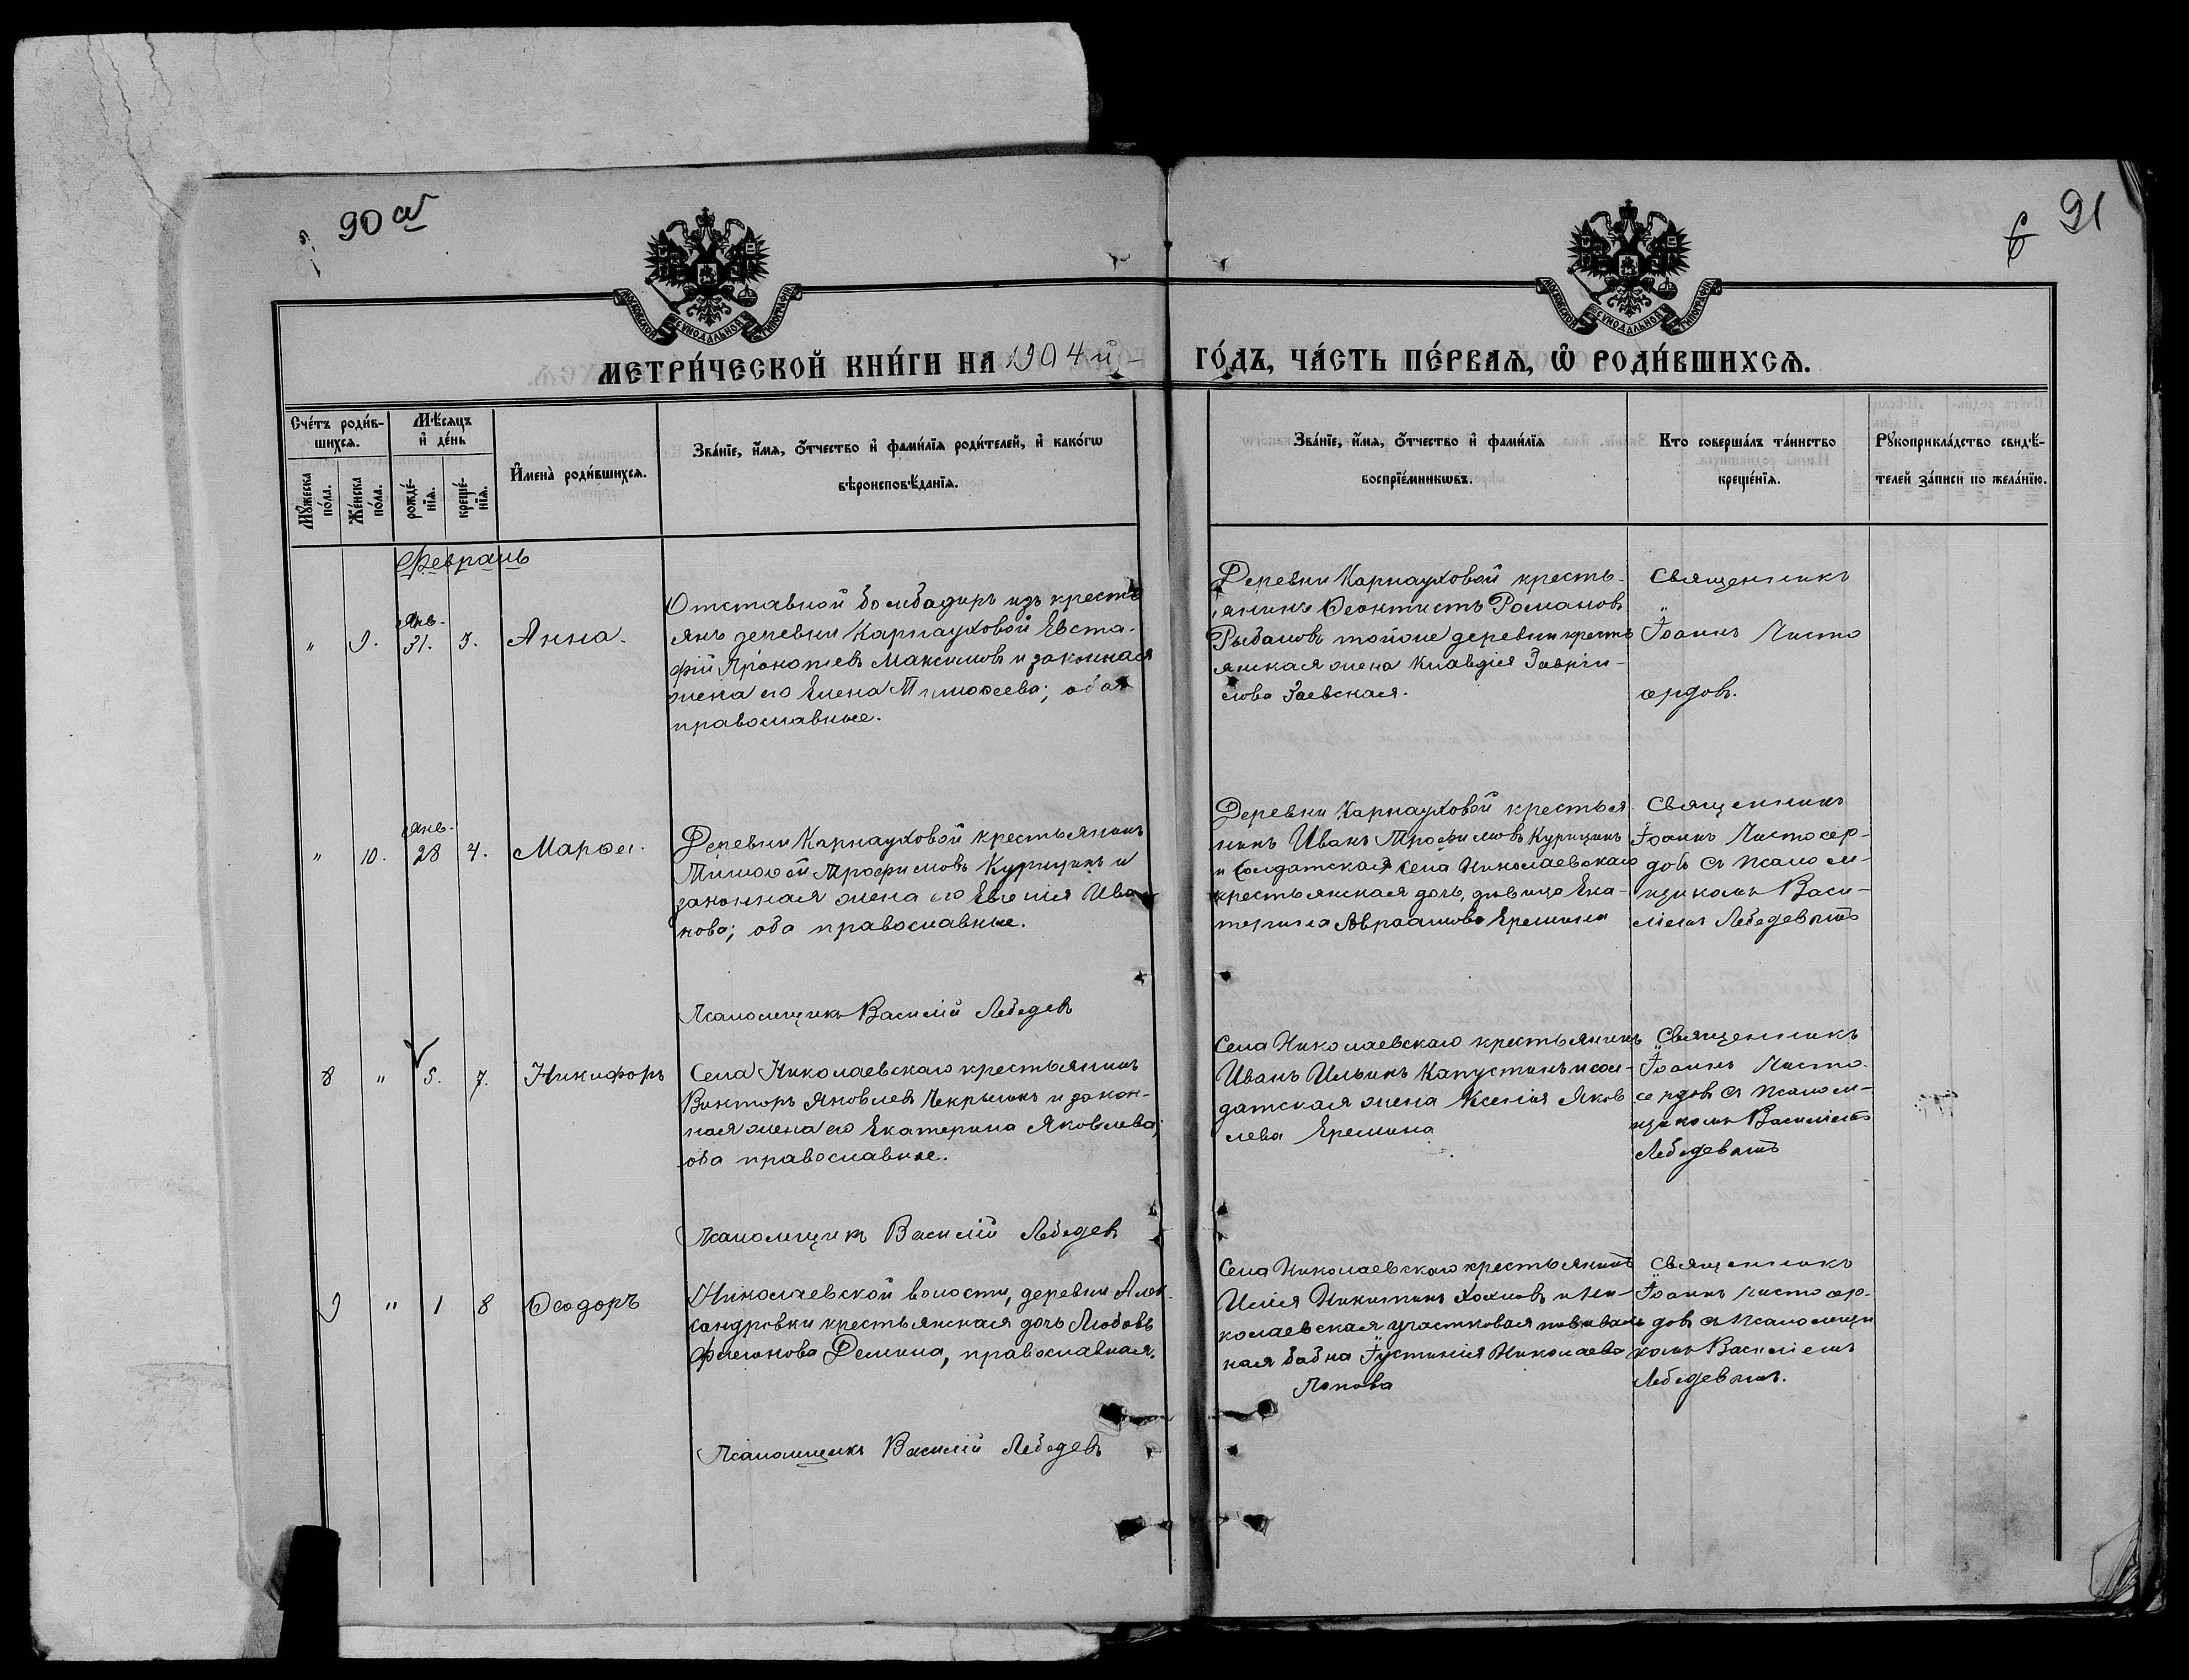 90 об
6 91
МОСКОВСКОЙ СѴНОДАЛЬНОЙ ТИПОГРАФІИ
МОСКОВСКОЙ СѴНОДАЛЬНОЙ ТИПОГРАФІИ
МЕТРИ́ЧЕСКОЙ КНИ́ГИ НА 1904 й ГО́ДЪ, ЧА́СТЬ ПЕ́РВАЯ, Ѡ҆ РОДИ́ВШИХСЯ.
Сче́тъ роди́в-
шихся.
Мꙋ́жеска
по́ла.
Же́нска
по́ла.
Мѣ́сяцъ
и҆ де́нь
рожде́-
нїя.
креще́-
нїя.
И҆мена̀ роди́вшихся.
Зва́нїе, и҆́мя, ѻ҆́тчество и҆ фами́лїя роди́телей, и҆ како́гѡ
вѣроисповѣ́данїя.
Зва́нїе, и҆́мя, ѻ҆́тчество и҆ фами́лїя
воспрїе́мникѡвъ.
Кто соверша́лъ та́инство
креще́нїя.
Рꙋкоприкла́дство свидѣ́-
телей за́писи по жела́нїю.
Февраль
" 9. Янв. 31. 3. Анна.
Отставной бомбадиръ изъ кресть
янъ деревни Карнауховой Евста-
фій Прокопьевъ Максимовъ и законная
жена его Елена Тимоѳеева; оба
православные.
Деревни Карнауховой кресть-
янинъ Ѳеоктистъ Романовъ
Рыбаловъ тойже деревни кресть
янская жена Клавдія Гаврiи-
лова Заевская.
Священникъ
Іоаннъ Чисто
сердовъ.
" 10. Янв. 28 4. Марѳа.
Деревни Карнауховой крестьянинъ
Тимоѳей Трофимовъ Курицинъ и
законная жена его Евгенія Ива
нова; оба православные.
Деревни Карнауховой крестья
нинъ Иванъ Трофимовъ Курицинъ
и солдатская села Николаевскаго
крестьянская дочь, дѣвица Ека-
терина Авраамова Еремина
Священникъ
Іоаннъ Чистосер-
довъ съ псалом-
щикомъ Васи-
ліемъ Лебедевымъ
Псаломщикъ Василій Лебедевъ
8 " 5. 7. Никифоръ
Села Николаевскаго крестьянинъ
Викторъ Яковлевъ Чекрыгинъ и закон-
ная жена его Екатерина Яковлева;
оба православные.
Села Николаевскаго крестьянинъ
Иванъ Ильинъ Капустинъ и сол-
датская жена Ксенія Яков
лева Еремина
Священникъ
Іоаннъ Чисто-
сердовъ съ псалом-
щикомъ Василіемъ
Лебедевымъ
Псаломщикъ Василій Лебедевъ
9 " 1 8 Ѳеодоръ
Николаевской волости, деревни Алек
сандровки крестьянская дочь Любовь
Филимонова Демина, православная.
Села Николаевскаго крестьянинъ
Илія Никитинъ Хохловъ и Ни-
колаевская участковая повиваль
ная бабка Іустинія Николаева
Попова
Священникъ
Іоаннъ Чистосер-
довъ съ псаломщи
комъ Василіемъ
Лебедевымъ.
Псаломщикъ Василій Лебедевъ